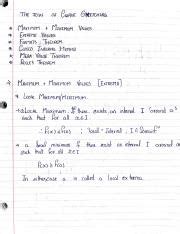 The tools of Curve Sketching
Maximum + Minimum Values
Extreme Values
Fermat's Theorem
Closed Interval Method
Mean Value Theorem
Rolle's Theorem
Maximum + Minimum Values [Extrema]
Local Maximum/Minimum
Local Maximum: if there exists an interval I around c such that for all x∈I
a local minimum if there exists an interval I around c such that for all x∈I
f(x) ≥ f(c)
In either case c is called a local extrema.